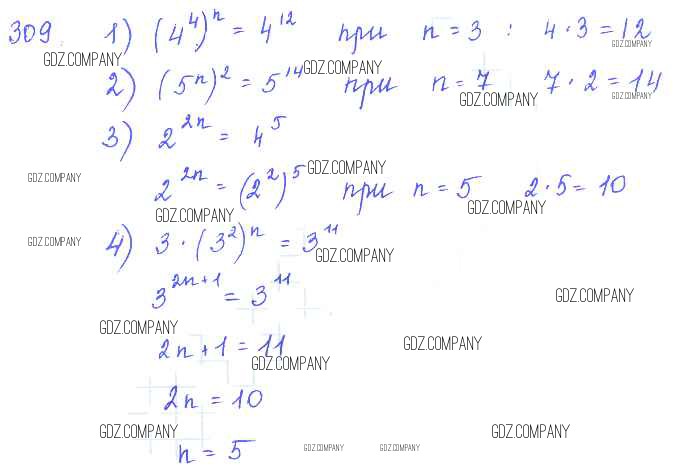 309. 1) (4⁴)ⁿ = 4¹² при n = 3 : 4 · 3 = 12
GDZ.COMPANY GDZ.COMPANY
GDZ.COMPANY
2) (5ⁿ)² = 5¹⁴ при n = 7 7 · 2 = 14
GDZ.COMPANY GDZ.COMPANY
3) 2²ⁿ = 4⁵
GDZ.COMPANY GDZ.COMPANY
2²ⁿ = (2²)⁵ при n = 5 2 · 5 = 10
GDZ.COMPANY GDZ.COMPANY
4) 3 · (3²)ⁿ = 3¹¹
GDZ.COMPANY GDZ.COMPANY
3²ⁿ⁺¹ = 3¹¹
GDZ.COMPANY
GDZ.COMPANY
2n + 1 = 11
GDZ.COMPANY GDZ.COMPANY
2n = 10
GDZ.COMPANY GDZ.COMPANY
n = 5
GDZ.COMPANY GDZ.COMPANY